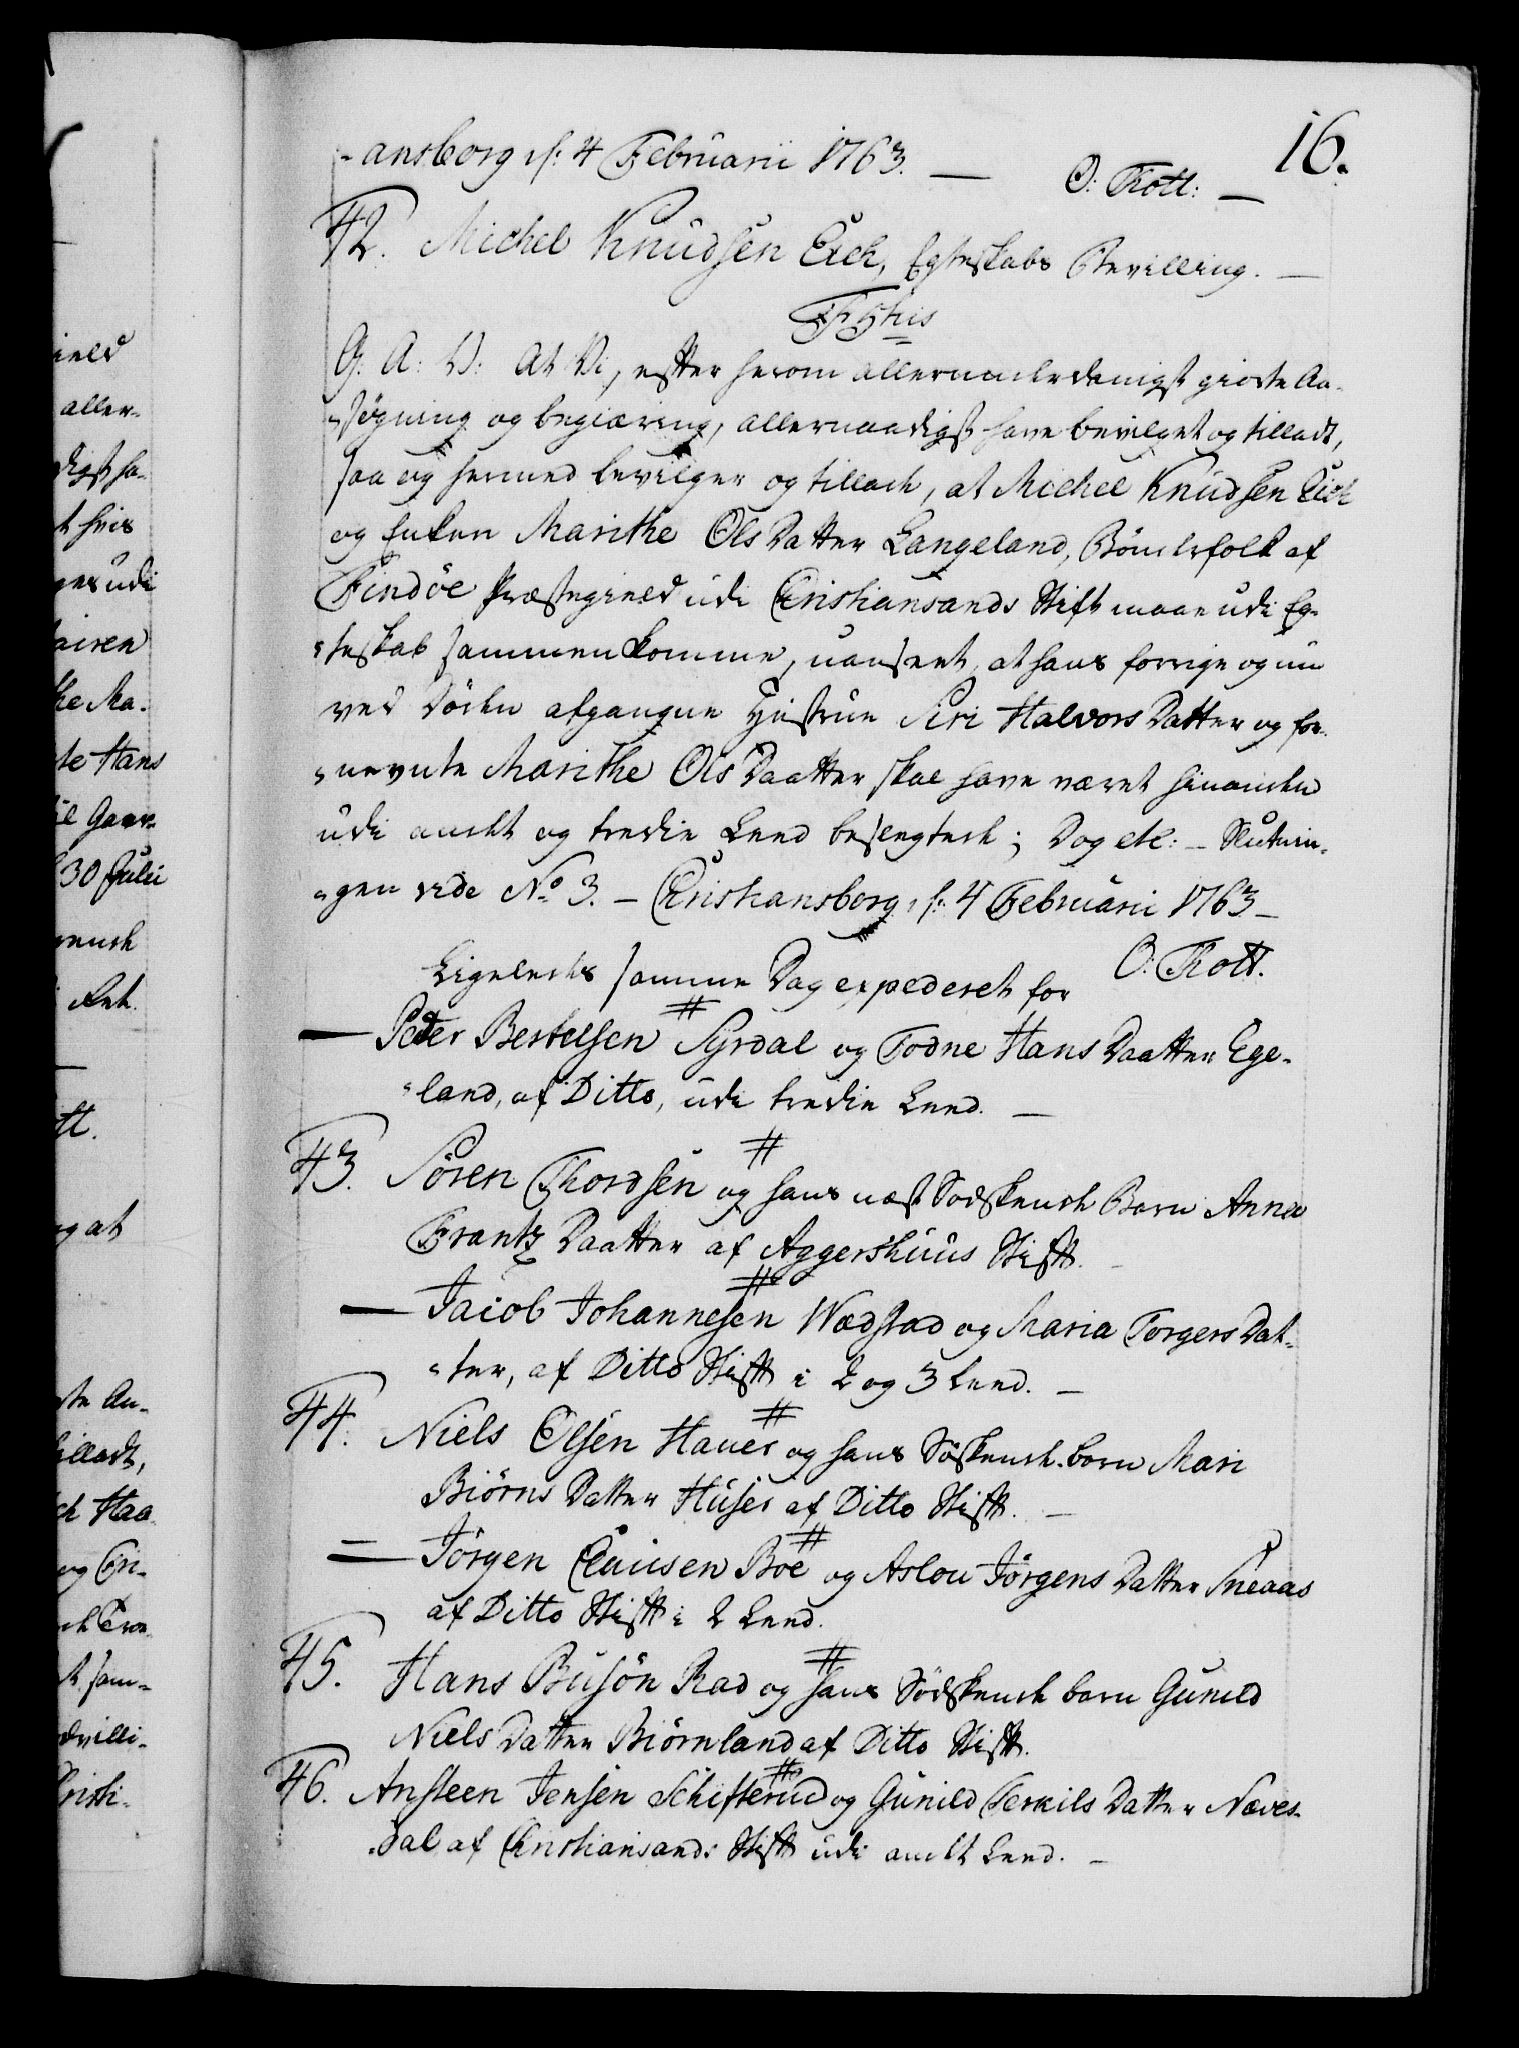 16.
-ansborg d: 4 Februarii 1763. — O: Thott: —
42. Michel Knudsen Eick, Egteskabs Bevilling. —
F 5this
G: A: V: At Vi, efter herom allerunderdanigst giorte An-
-søgning og begiæring, allernaadigst have bevilget og tilladt,
saa og hermed bevilger og tillade, at Michel Knudsen Eick
og Enken Marithe Ols Datter Langeland, Bønderfolk af
Findöe Præstegield udi Christiansands Stift maae udi Eg-
-teskab sammenkomme, uanseet, at hans forrige og nu
ved Döden afgangne Hustrue Siri Halvors Datter og for-
-nevnte Marithe Ols Daatter skal have været hinanden
udi andet og tredie Leed beslegtede; Dog etc: — Slutnin-
-gen vide No 3. — Christiansborg d: 4 Februarii 1763 —
O: Thott.
Ligeledes samme Dag expederet for
— Peder Bertelsen Syrdal og Todne Hans Daatter Ege-
-land, af Ditto, udi tredie Leed. —
43. Sören Thordsen og hans næst Södskende Barn Anna
Frantz Daatter af Aggershuus Stift. —
— Jacob Johannesen Wadstad og Maria Torgers Dat-
-ter, af Ditto Stift i 2 og 3 Leed. —
44. Niels Olsen Hauer og hans Söskende-barn Mari
Biörns Datter Huser af Ditto Stift. —
— Jörgen Clausen Böe og Aslou Jörgens Datter Sneaas
af Ditto Stift i 2 Leed.
45. Hans Busön Rad og hans Södskende barn Gunild
Niels Datter Biörnland af Ditto Stift.
46. Ansteen Jensen Schifterud og Gunild Terkils Datter Næves-
-dal af Christiansands Stift udi andet Leed. —